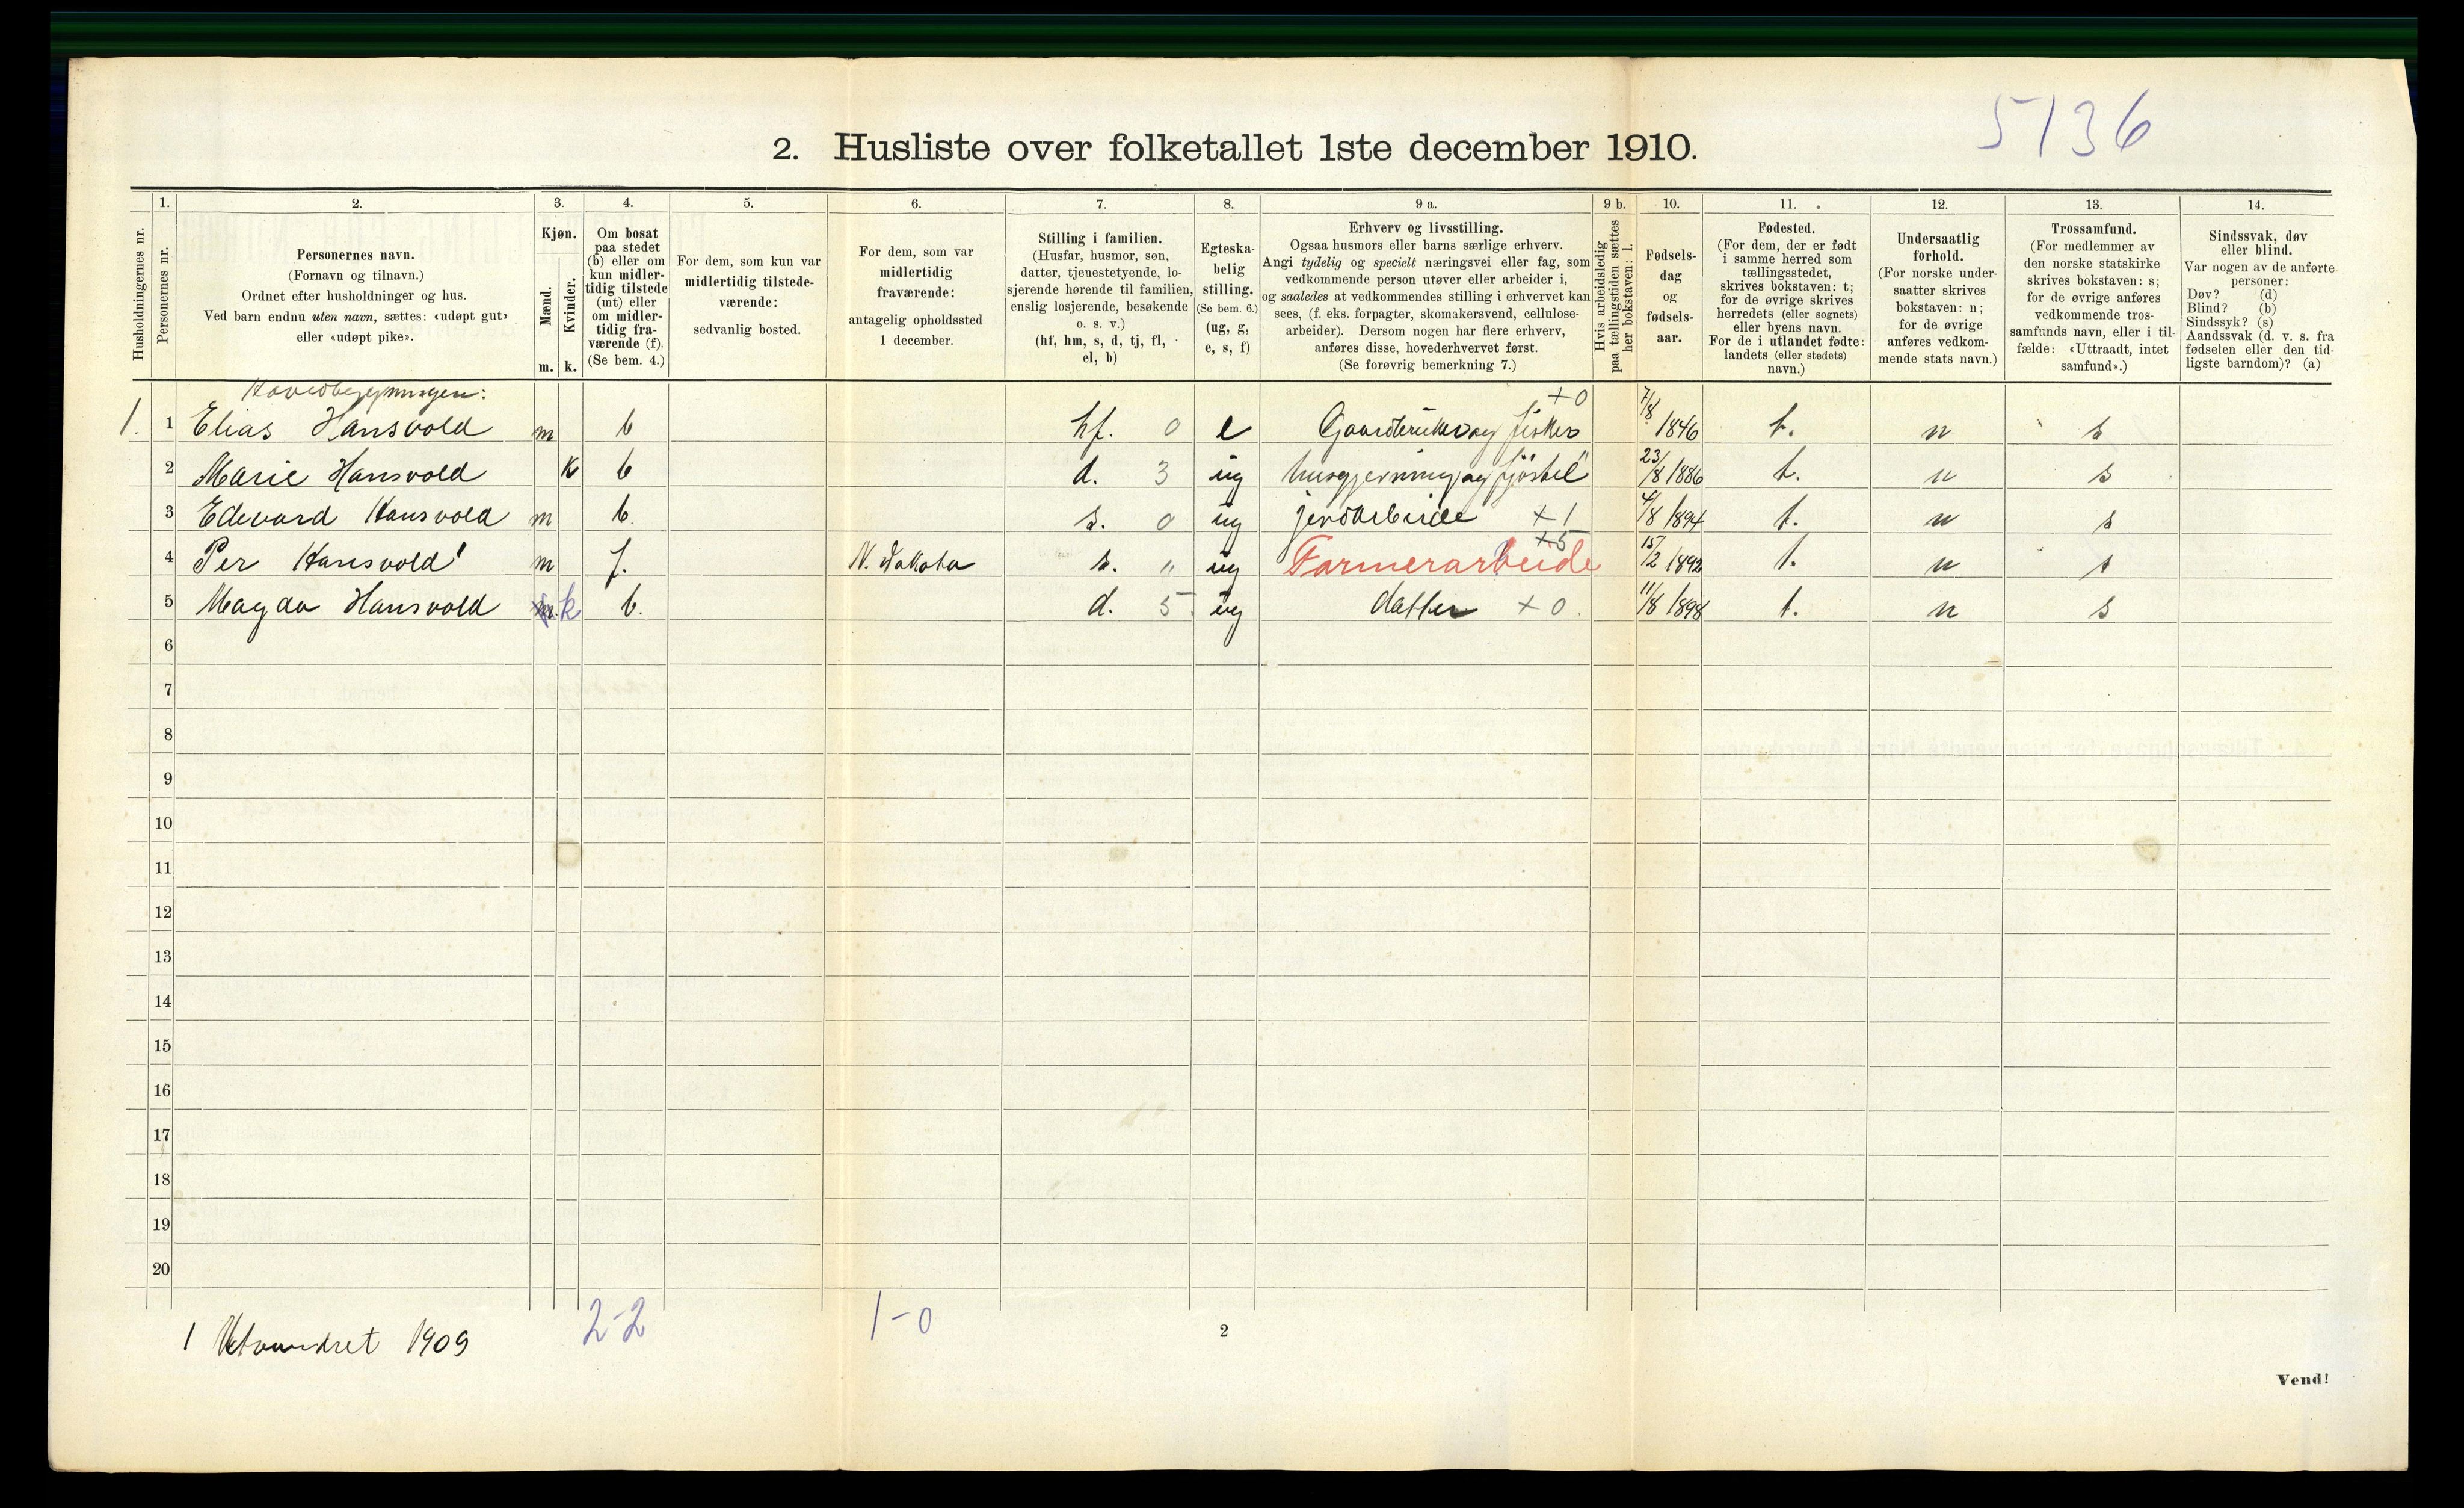 5136
2. Husliste over folketallet 1ste december 1910.
1. 2. 3. 4. 5. 6. 7. 8. 9 a. 9 b. 10. 11. 12. 13. 14.
Husholdningernes nr.
Personernes nr.
Personernes navn.
(Fornavn og tilnavn.)
Ordnet efter husholdninger og hus.
Ved barn endnu uten navn, sættes: «udøpt gut»
eller «udøpt pike».
Kjøn.
Mænd.
Kvinder.
m. k.
Om bosat
paa stedet
(b) eller om
kun midler-
tidig tilstede
(mt) eller
om midler-
tidig fra-
værende (f).
(Se bem. 4.)
For dem, som kun var
midlertidig tilstede-
værende:
sedvanlig bosted.
For dem, som var
midlertidig
fraværende:
antagelig opholdssted
1 december.
Stilling i familien.
(Husfar, husmor, søn,
datter, tjenestetyende, lo-
sjerende hørende til familien,
enslig losjerende, besøkende
o. s. v.)
(hf, hm, s, d, tj, fl,
el, b)
Egteska-
belig
stilling.
(Se bem. 6.)
(ug, g,
e, s, f)
Erhverv og livsstilling.
Ogsaa husmors eller barns særlige erhverv.
Angi tydelig og specielt næringsvei eller fag, som
vedkommende person utøver eller arbeider i,
og saaledes at vedkommendes stilling i erhvervet kan
sees, (f. eks. forpagter, skomakersvend, cellulose-
arbeider). Dersom nogen har flere erhverv,
anføres disse, hovederhvervet først.
(Se forøvrig bemerkning 7.)
Hvis arbeidsledig
paa tællingstiden sættes
her bokstaven: l.
Fødsels-
dag
og
fødsels-
aar.
Fødested.
(For dem, der er født
i samme herred som
tællingsstedet,
skrives bokstaven: t;
for de øvrige skrives
herredets (eller sognets)
eller byens navn.
For de i utlandet fødte:
landets (eller stedets)
navn.)
Undersaatlig
forhold.
(For norske under-
saatter skrives
bokstaven: n;
for de øvrige
anføres vedkom-
mende stats navn.)
Trossamfund.
(For medlemmer av
den norske statskirke
skrives bokstaven: s;
for de øvrige anføres
vedkommende tros-
samfunds navn, eller i til-
fælde: «Uttraadt, intet
samfund».)
Sindssvak, døv
eller blind.
Var nogen av de anførte
personer:
Døv? (d)
Blind? (b)
Sindssyk? (s)
Aandssvak (d. v. s. fra
fødselen eller den tid-
ligste barndom)? (a)
Hovedbygningen:
1. 1 Elias Hansvold m b hf. 0 e Gaardbruker og fisker +0 7/8 1846 t. n s
2 Marie Hansvold k b d. 3 ug husgjerning og fjöstel " 23/8 1886 t. n s
3 Edevard Hansvold m b. s. 0 ug jordarbeide +1 4/8 1894 t. n s
4 Per Hansvold¹ m f. N. Dakota s. " ug Farmerarbeide +5 15/2 1892 t. n s
5 Magda Hansvold m. k b. d. 5. ug datter +0. 11/8 1898 t. n s
6
7
8
9
10
11
12
13
14
15
16
17
18
19
20
2-2 1-0
1 Utvandret 1909
2
Vend!